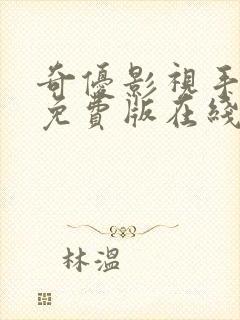 奇優影視手
免費版在綫
林溫